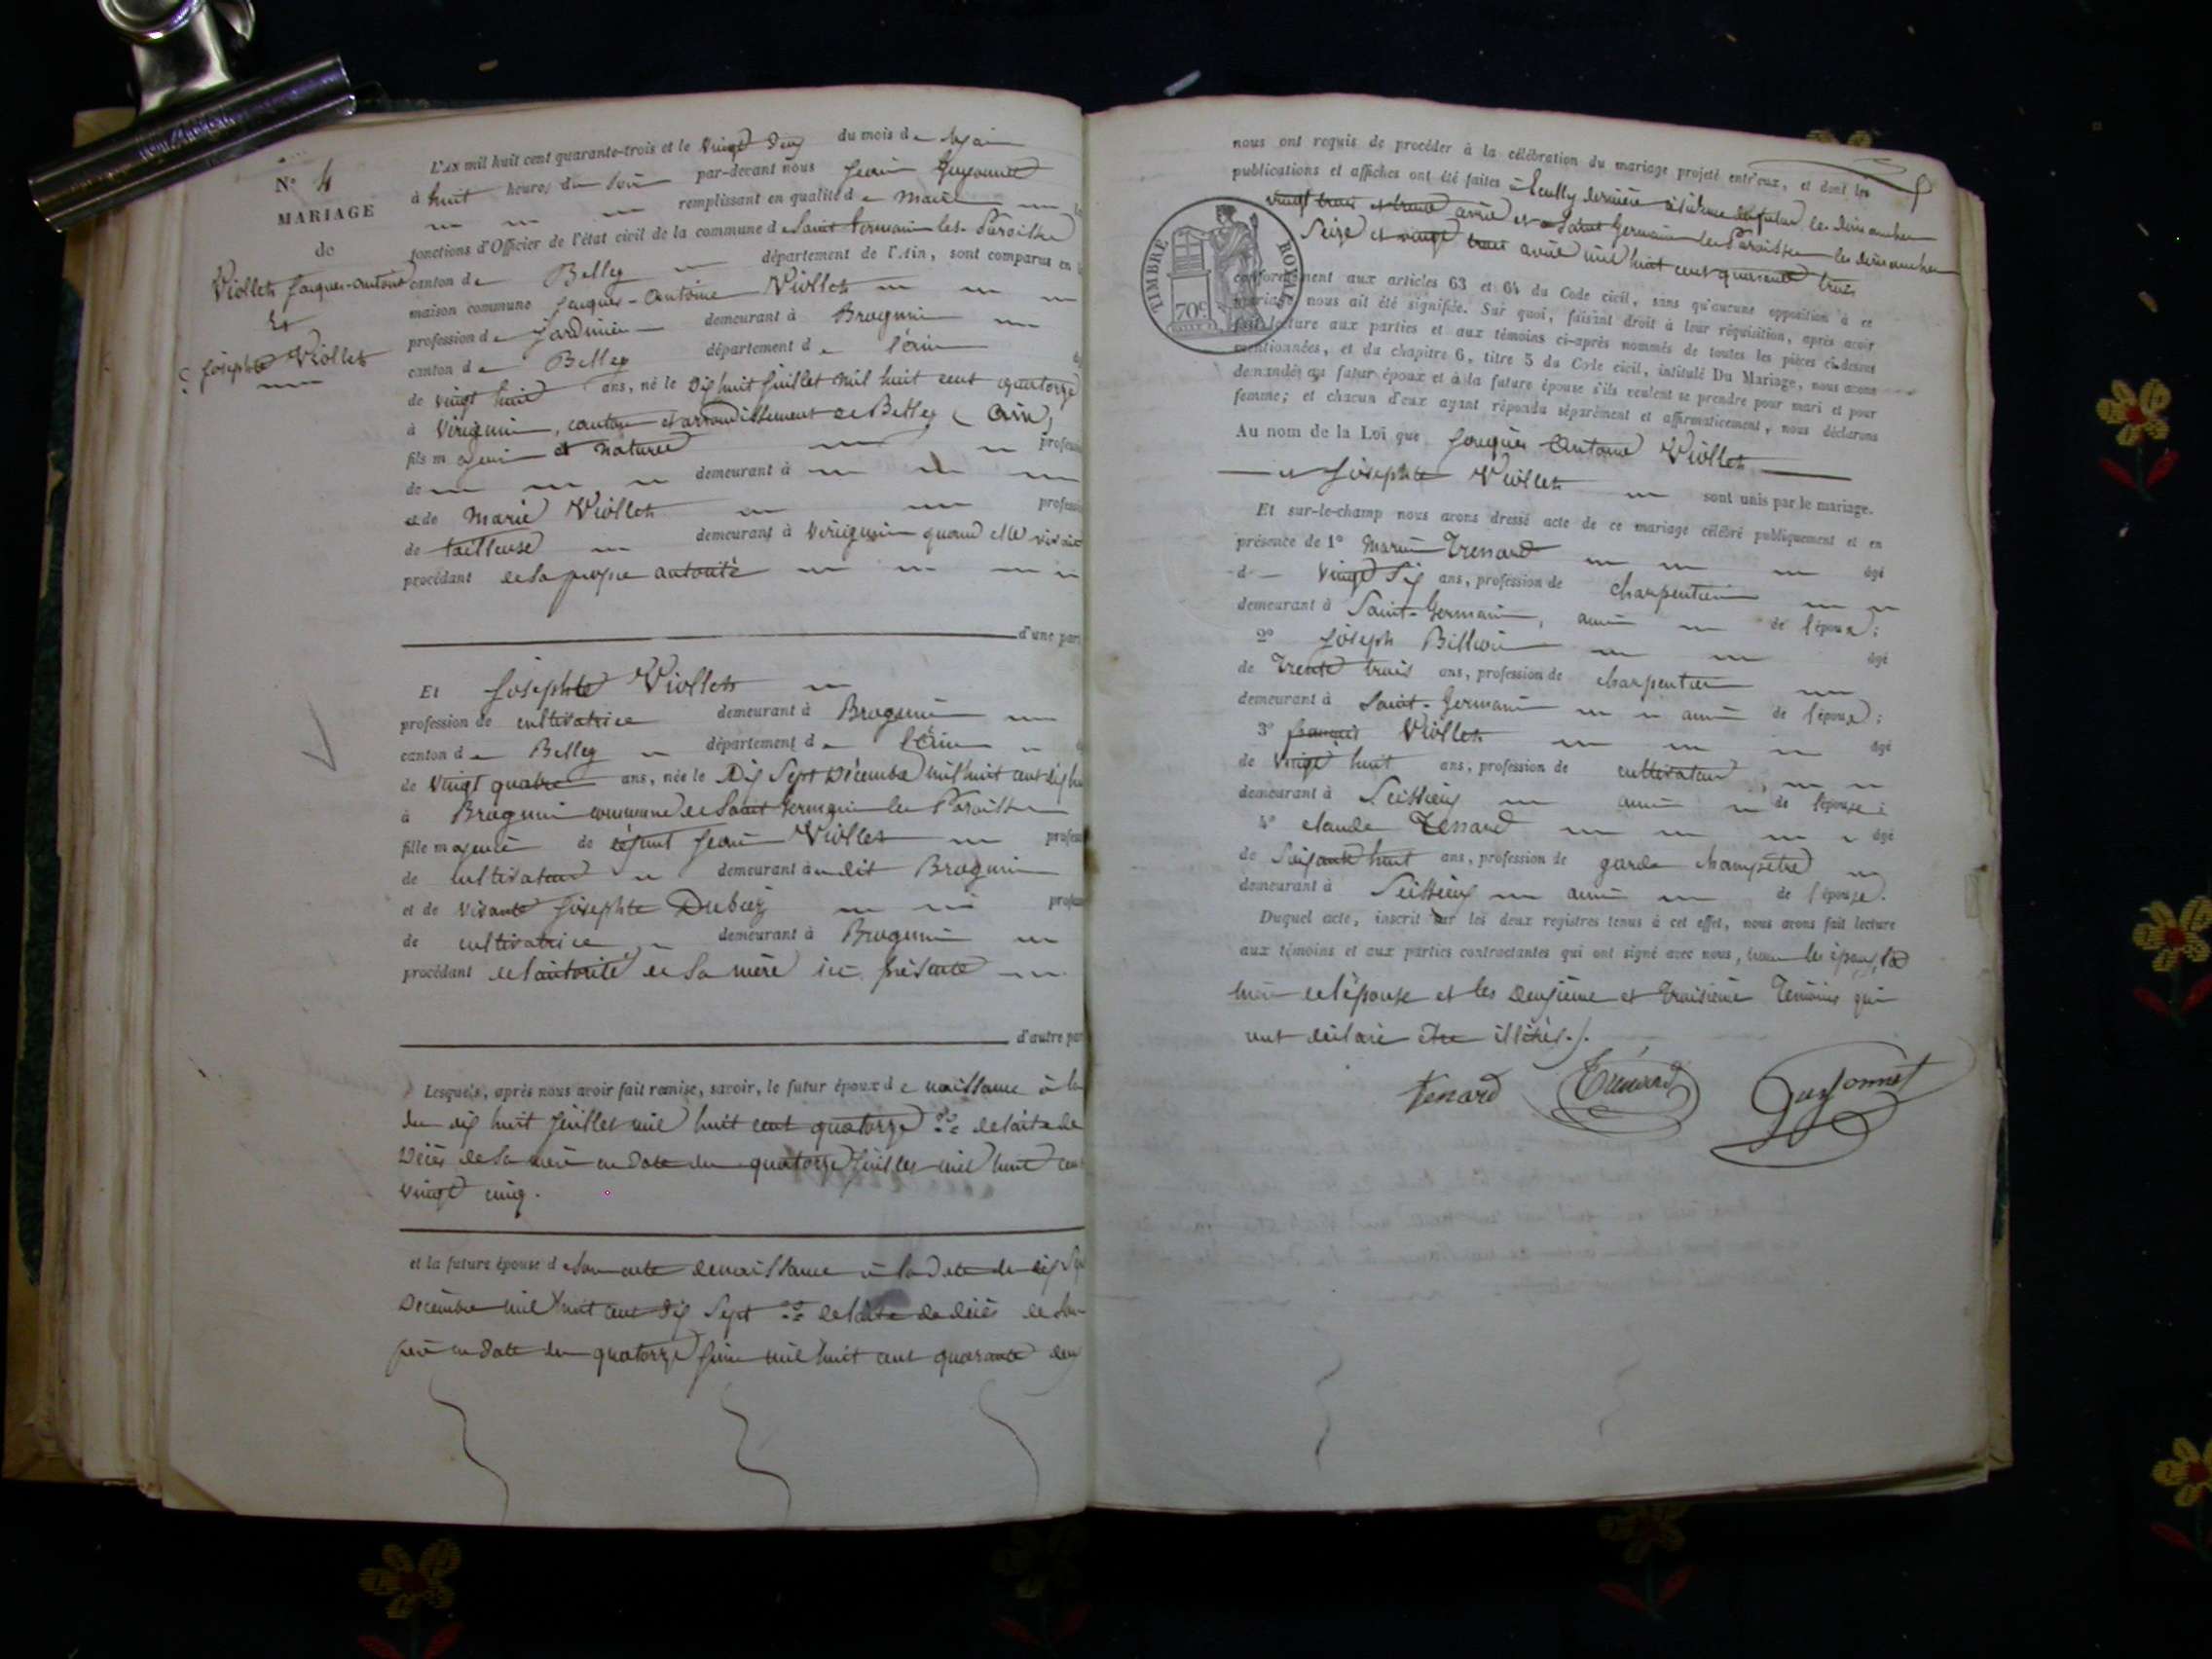 N° 4
MARIAGE
de
Viollet Jacques-Antoine
Et
Josephte Viollet
L'AN mil huit cent quarante-trois et le vingt deux du mois de Mai
à huit heures du soir par-devant nous Jean Guyonnet
remplissant en qualité de Maire
fonctions d'Officier de l'état civil de la commune de Saint Germain les Paroisses
canton de Belley département de l'Ain, sont comparus en
maison commune Jacques-Antoine Viollet
profession de jardinier demeurant à Brognin
canton de Belley département de l'ain
de vingt huit ans, né le dix huit juillet mil huit cent quatorze
à Virignin, canton et arrondissement de Belley (Ain)
fils majeur et naturel
de demeurant à
et de Marie Viollet
de tailleuse demeurant à Virignin quand elle vivait
procédant de sa propre autorité
d'une par
Et Josephte Viollet
profession de cultivatrice demeurant à Brognin
canton de Belley département de l'Ain
de vingt quatre ans, née le dix sept décembre mil huit cent dix hu
à Brognin commune de Saint Germain les Paroisses
fille majeure de défunt Jean Viollet
de cultivateur demeurant audit Brognin
et de vivante Josephte
de cultivatrice demeurant à Brognin
procédant de l'autorité de sa mère ici présente
d'autre par
Lesquels, après nous avoir fait remise, savoir, le futur époux de naissance à la
du dix huit juillet mil huit cent quatorze 2° de l'acte de
décès de sa mère en date du quatorze juillet mil huit cent
vingt cinq.
et la future épouse de son acte de naissance à la date du dix sept
décembre mil huit cent dix sept 2° de l'acte de décès de son
père en date du quatorze juin mil huit cent quarante deux
5
nous ont requis de procéder à la célébration du mariage projeté entr'eux, et dont les
publications et affiches ont été faites à dernière résidence du futur les dimanches
vingt trois et trente avril et à Saint Germain les Paroisses les dimanches
Seize et vingt trois avril mil huit cent quarante trois
TIMBRE ROYAL
70c
conformément aux articles 63 et 64 du Code civil, sans qu'aucune opposition à ce
mariage nous ait été signifiée. Sur quoi, faisant droit à leur réquisition, après avoir
fait lecture aux parties et aux témoins ci-après nommés de toutes les pièces ci-dessus
mentionnées, et du chapitre 6, titre 5 du Code civil, intitulé Du Mariage, nous avons
demandés au futur époux et à la future épouse s'ils veulent se prendre pour mari et pour
femme; et chacun d'eux ayant répondu séparément et affirmativement, nous déclarons
Au nom de la Loi que Jacques Antoine Viollet
et Josephte Viollet sont unis par le mariage.
Et sur-le-champ nous avons dressé acte de ce mariage célébré publiquement et en
présence de 1° Trenard âgé
d vingt six ans, profession de charpentier
demeurant à Saint-Germain, ami de l'époux;
2° Joseph Billion âgé
de Trente trois ans, profession de charpentier
demeurant à Saint-Germain ami de l'époux;
3° françois Viollet âgé
de vingt huit ans, profession de cultivateur
demeurant à ami de l'épouse;
4° claude Tenard âgé
de soixante huit ans, profession de garde champetre
demeurant à ami de l'épouse.
Duquel acte, inscrit sur les deux registres tenus à cet effet, nous avons fait lecture
aux témoins et aux parties contractantes qui ont signé avec nous, les époux, la
mère de l'épouse et les deuxième et troisième témoins qui
ont déclaré être illitérés./.
Tenard Trenard Guyonnet